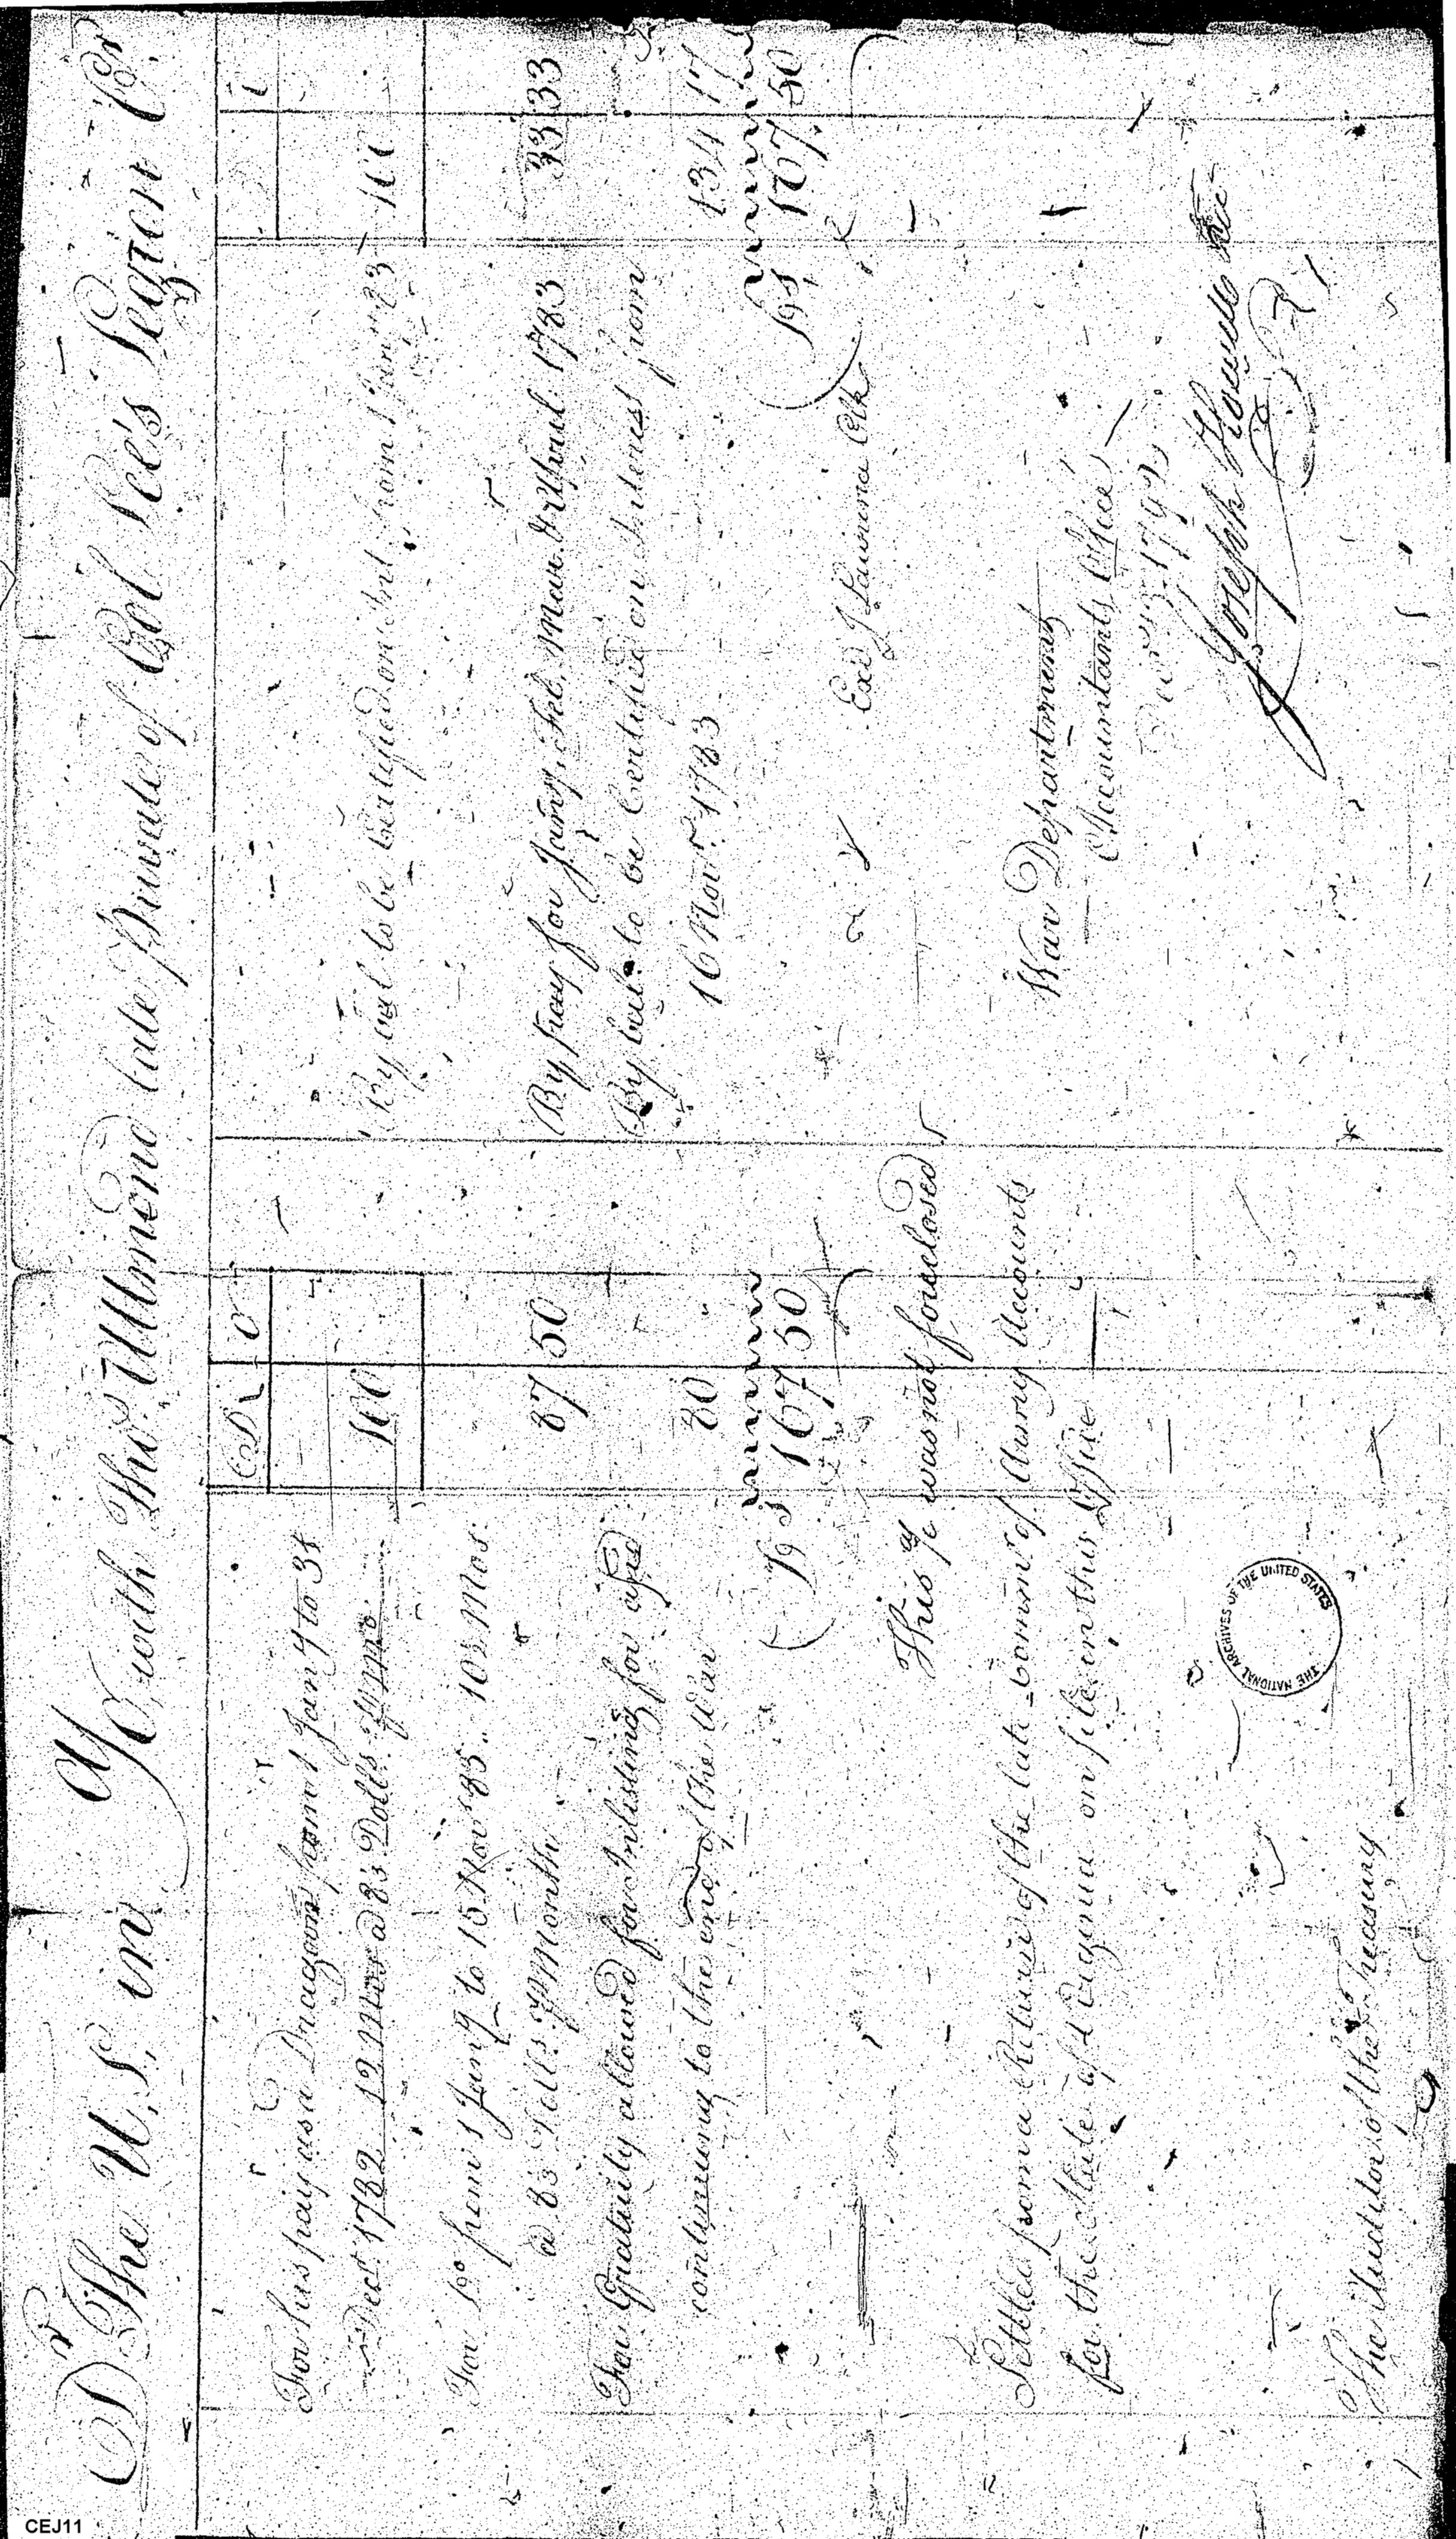 Dr The U.S. in a/c with Thos. Ullmend late private of Col Lee's Legion Cr
D C
For his pay as a Dragoon from 1 Jany to 31
Decr 1782 12 Mos a 8⅓ Dolls. ⅌ Mo. 100
For Do from 1 Jany to 15 Novr 83 .. 10½ Mos.
a 8⅓ Dolls ⅌ Month 87 50
For Gratuity allowed for Inlisting for and
continuing to the end of the War 80 "
Ds 167 50
This a/c was not foreclosed
Settled from a Return of the late Commr. of Army Accounts
for the State of Virginia on file in this Office
The Auditor of the Treasury
C
By bal to be Certified on Int. from 1 Jany 83 100
By pay for Jany, Feb, Mar. & April 1783 33 33
By bal. to be Certified on Interest from
16 Novr. 1783 134 17
Ds 167 50
Exd J Clk
War Department
Accountants Office
1792
Joseph Howell
THE NATIONAL ARCHIVES OF THE UNITED STATES
CEJ11